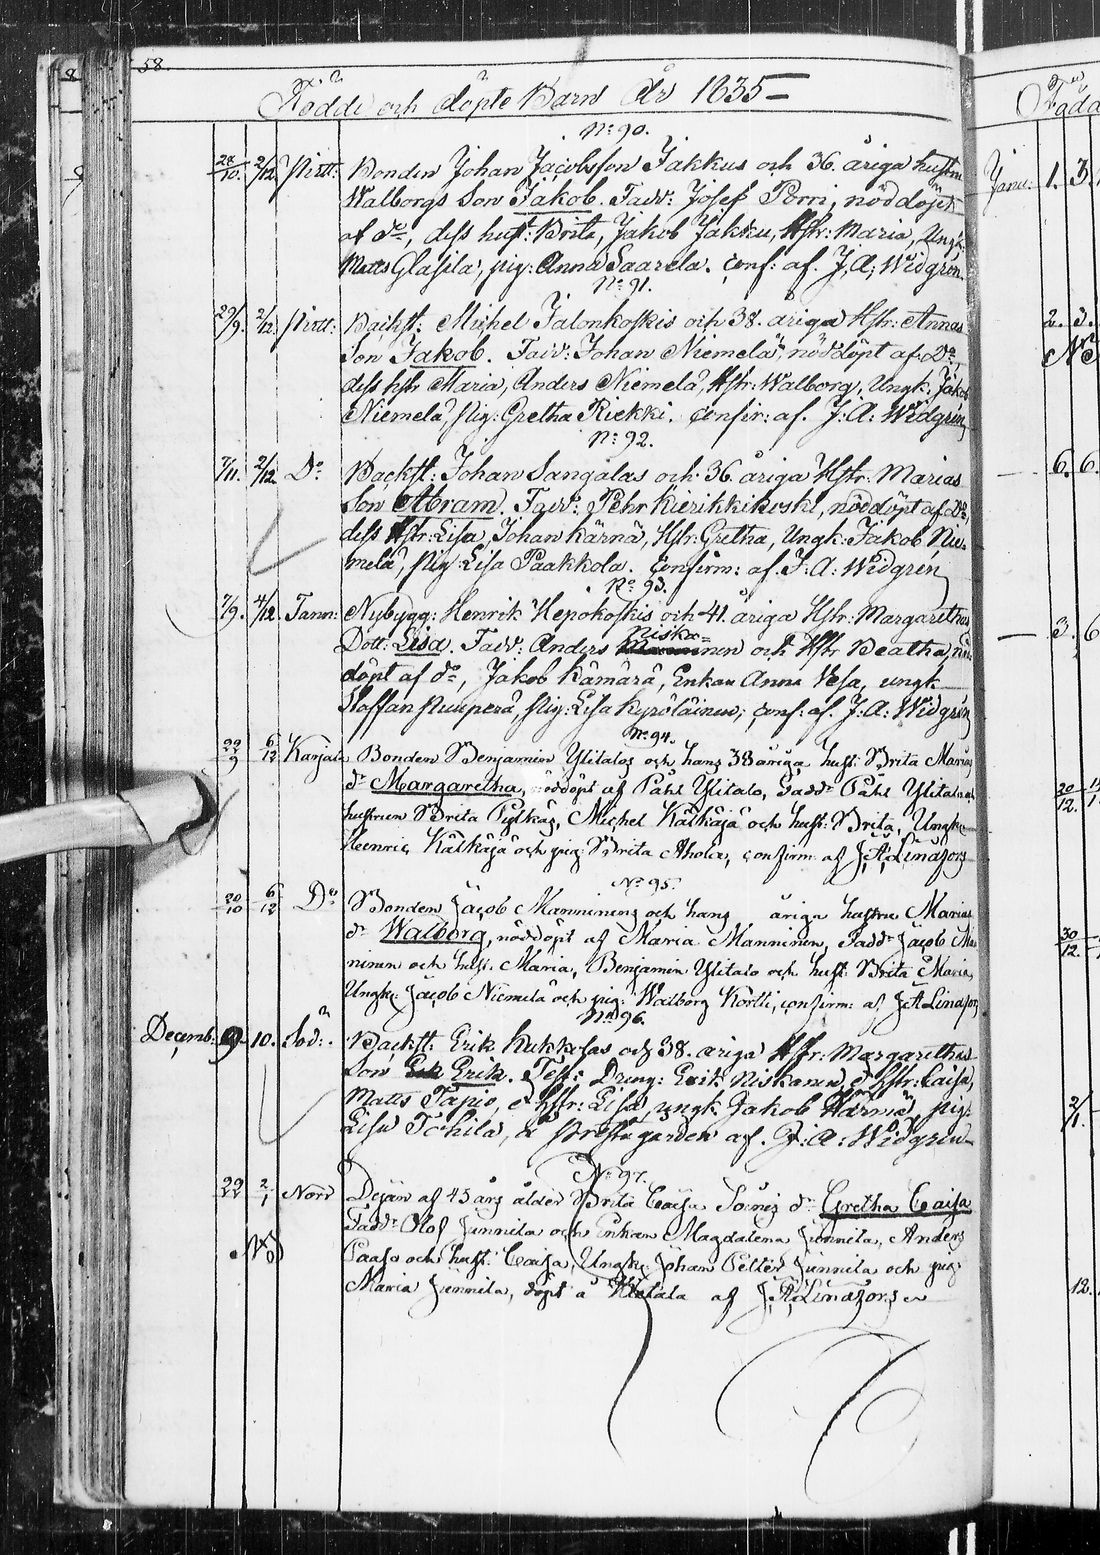 58.
Födde och döpte Barn År 1835
No 90.
28/10. 2/12 Pirtt: Bonden Johan Jacobsson Jakkus och 36. åriga hustru
Walborgs Son Jakob. Fadd: Josef Porri, nöddöpt
af do, dess hust: Brita, Jakob Jakku, Hstr: Maria, Ungk:
Matts Glasila, pig: Anna Saarela. conf: af. J. A: Widgrén.
No 91.
29/9. 2/12 Pirtt: Backst: Michel Jalonkoskis och 38. åriga Hstr: Annas
Son Jakob. Fadd: Johan Niemelä, nöddöpt af Do,
dess hstr Maria, Anders Niemelä, Hstr: Walborg, Ungk: Jakob
Niemelä, Pig: Gretha Riekki. Confir: af. J: A: Widgrén
No: 92.
7/11. 2/12 Do Backst: Johan Sangalas och 36. åriga Hstr: Marias
Son Abram. Fadd: Pehr Kierikkikoski, nöddöpt af Do,
dess Hstr: Lisa, Johan Kärnä, Hstr: Gretha, Ungk: Jakob Nie-
melä, Pig: Lisa Paakkola. Confirm: af. J: A: Widgrén
No 93.
7/9. 4/12 Tann: Nybygg: Henrik Hepokoskis och 41. åriga Hstr: Margarethas
Dott: Lisa. Fadd: Anders Niska=nen och Hstr Beatha, nöd
döpt af do, Jakob Kämärä, Enkan Anna Vesa, ungk
Staffan Puuperä, Pig: Lisa Kyröläinen; conf: af. J: A: Widgrén
No 94.
22/9 6/12 Karjal: Bonden Benjamin Ylitalos och hans 38 åriga hust: Brita Marias
dr Margaretha, nöddöpt af Påhl Ylitalo, Fadd: Påhl Ylitalo och
hustrun Brita Pylkäs, Michel Kälkäjä och hust: Brita, Ungk:
Henric Kälkäjä och pig: Brita Ahola, confirm: af J. A. Lindfors
No 95.
20/10 6/12 Do Bonden Jacob Manninens och hans åriga hustru Marias
dr Walborg, nöddöpt af Maria Manninen, Fadd: Jacob Ma
ninen och hust: Maria, Benjamin Ylitalo och hust: Brita Maria,
Ungk: Jacob Niemelä och pig: Walborg Kortti, confirm: af J A Lindfors,
No 96.
Decemb: 9. 10. Sod: Backst: Erik Kukkolas och 38. åriga Hstr: Margarethas
Son Erik. Test: Dreng: Erik Niskanen, o Hstr: Caisa,
Matts Tapio, o hstr: Lisa, ungk. Jakob Härmä, pig:
Lisa Tohila, å Prestgården af. J: A: Widgrén
No 97.
29/11 2/1 Nord Dejan af 43 års ålder Brita Caisa Soinis dr Gretha Caisa
Fadd: Olof Junnila och Enkan Magdalena Junnila, Anders
Paaso och hust: Caisa, Ungk: Johan Petter Junnila och pig:
Maria Junnila, döpt å Utlala af J. A. Lindfors
Föda
Janu: 1. 3.
2. 3.
6. 6.
3. 6
20/12.
30/12.
2/1.
12.